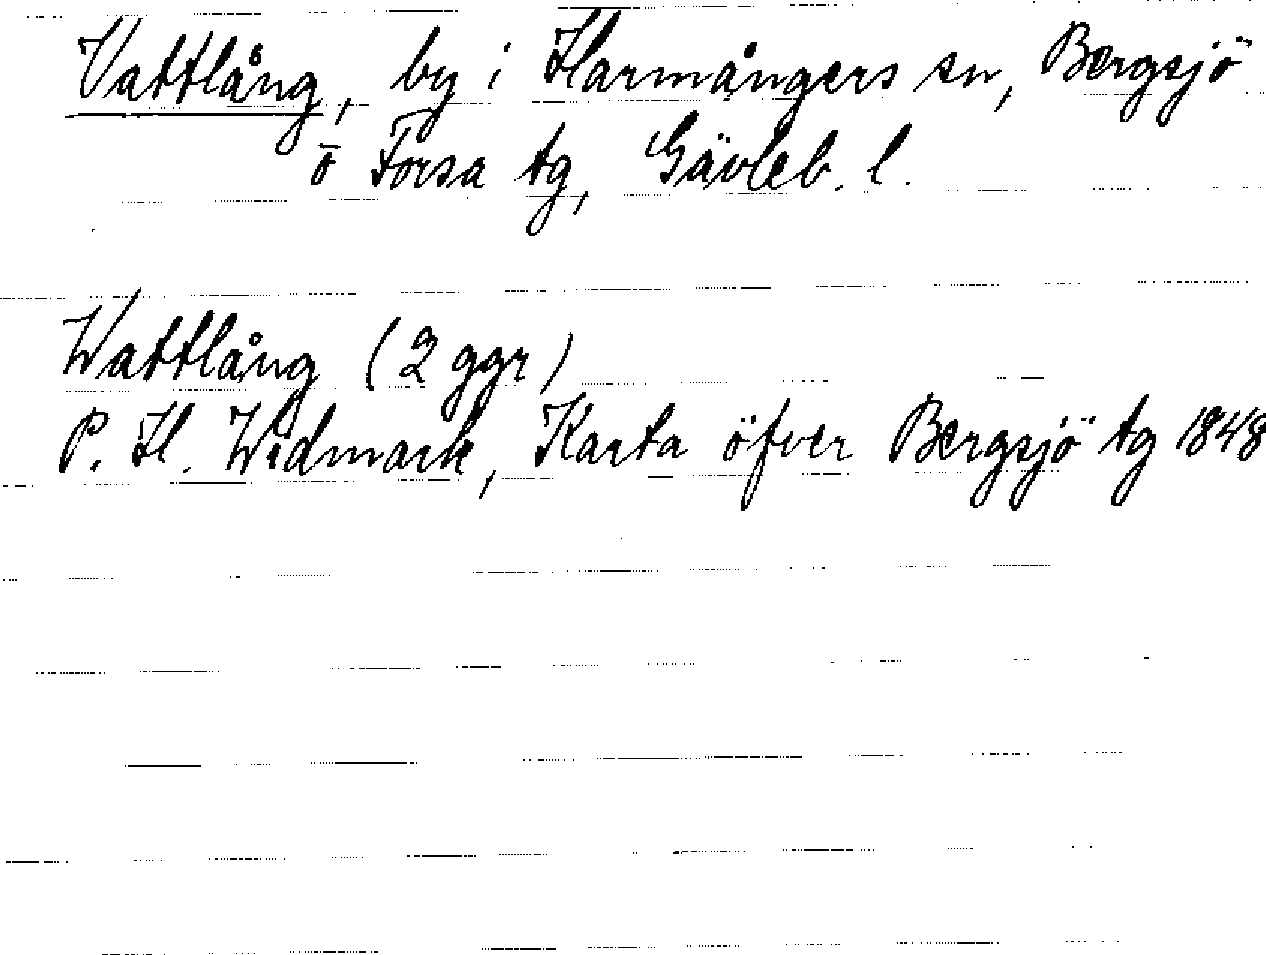 Vattlång, by i Harmångers sn, Bergsjö
o Forsa tg, Gävleb. l.
Wattlång (2 ggr)
P. H. Widmark, Karta öfver Bergsjö tg 1848